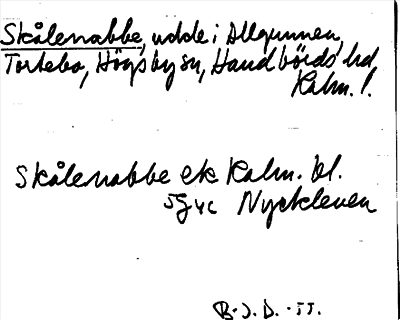 Skålenabbe, udde i Allgunnen,
Torlebo, Högsby sn, Handbörds hd,
Kalm. l.
Skålenabbe ek Kalm. bl.
5G vc Nyckleven
B.J.D. -55.